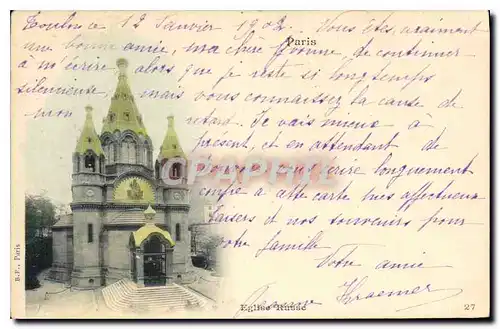 Toulouse 12 Janvier 1902. Vous êtes vraiment
une bonne amie, ma chère Yvonne de continuer
Paris
à m'écrire alors que je reste si longtemps
silencieuse, mais vous connaissez la cause de
mon retard. Je vais mieux à
présent, et en attendant de
vous écrire longuement
à cette carte mes affectueux
baisers et nos souvenirs pour
votre famille.
Votre amie
Eglise Russe
27
B.F., Paris
CPARAMA